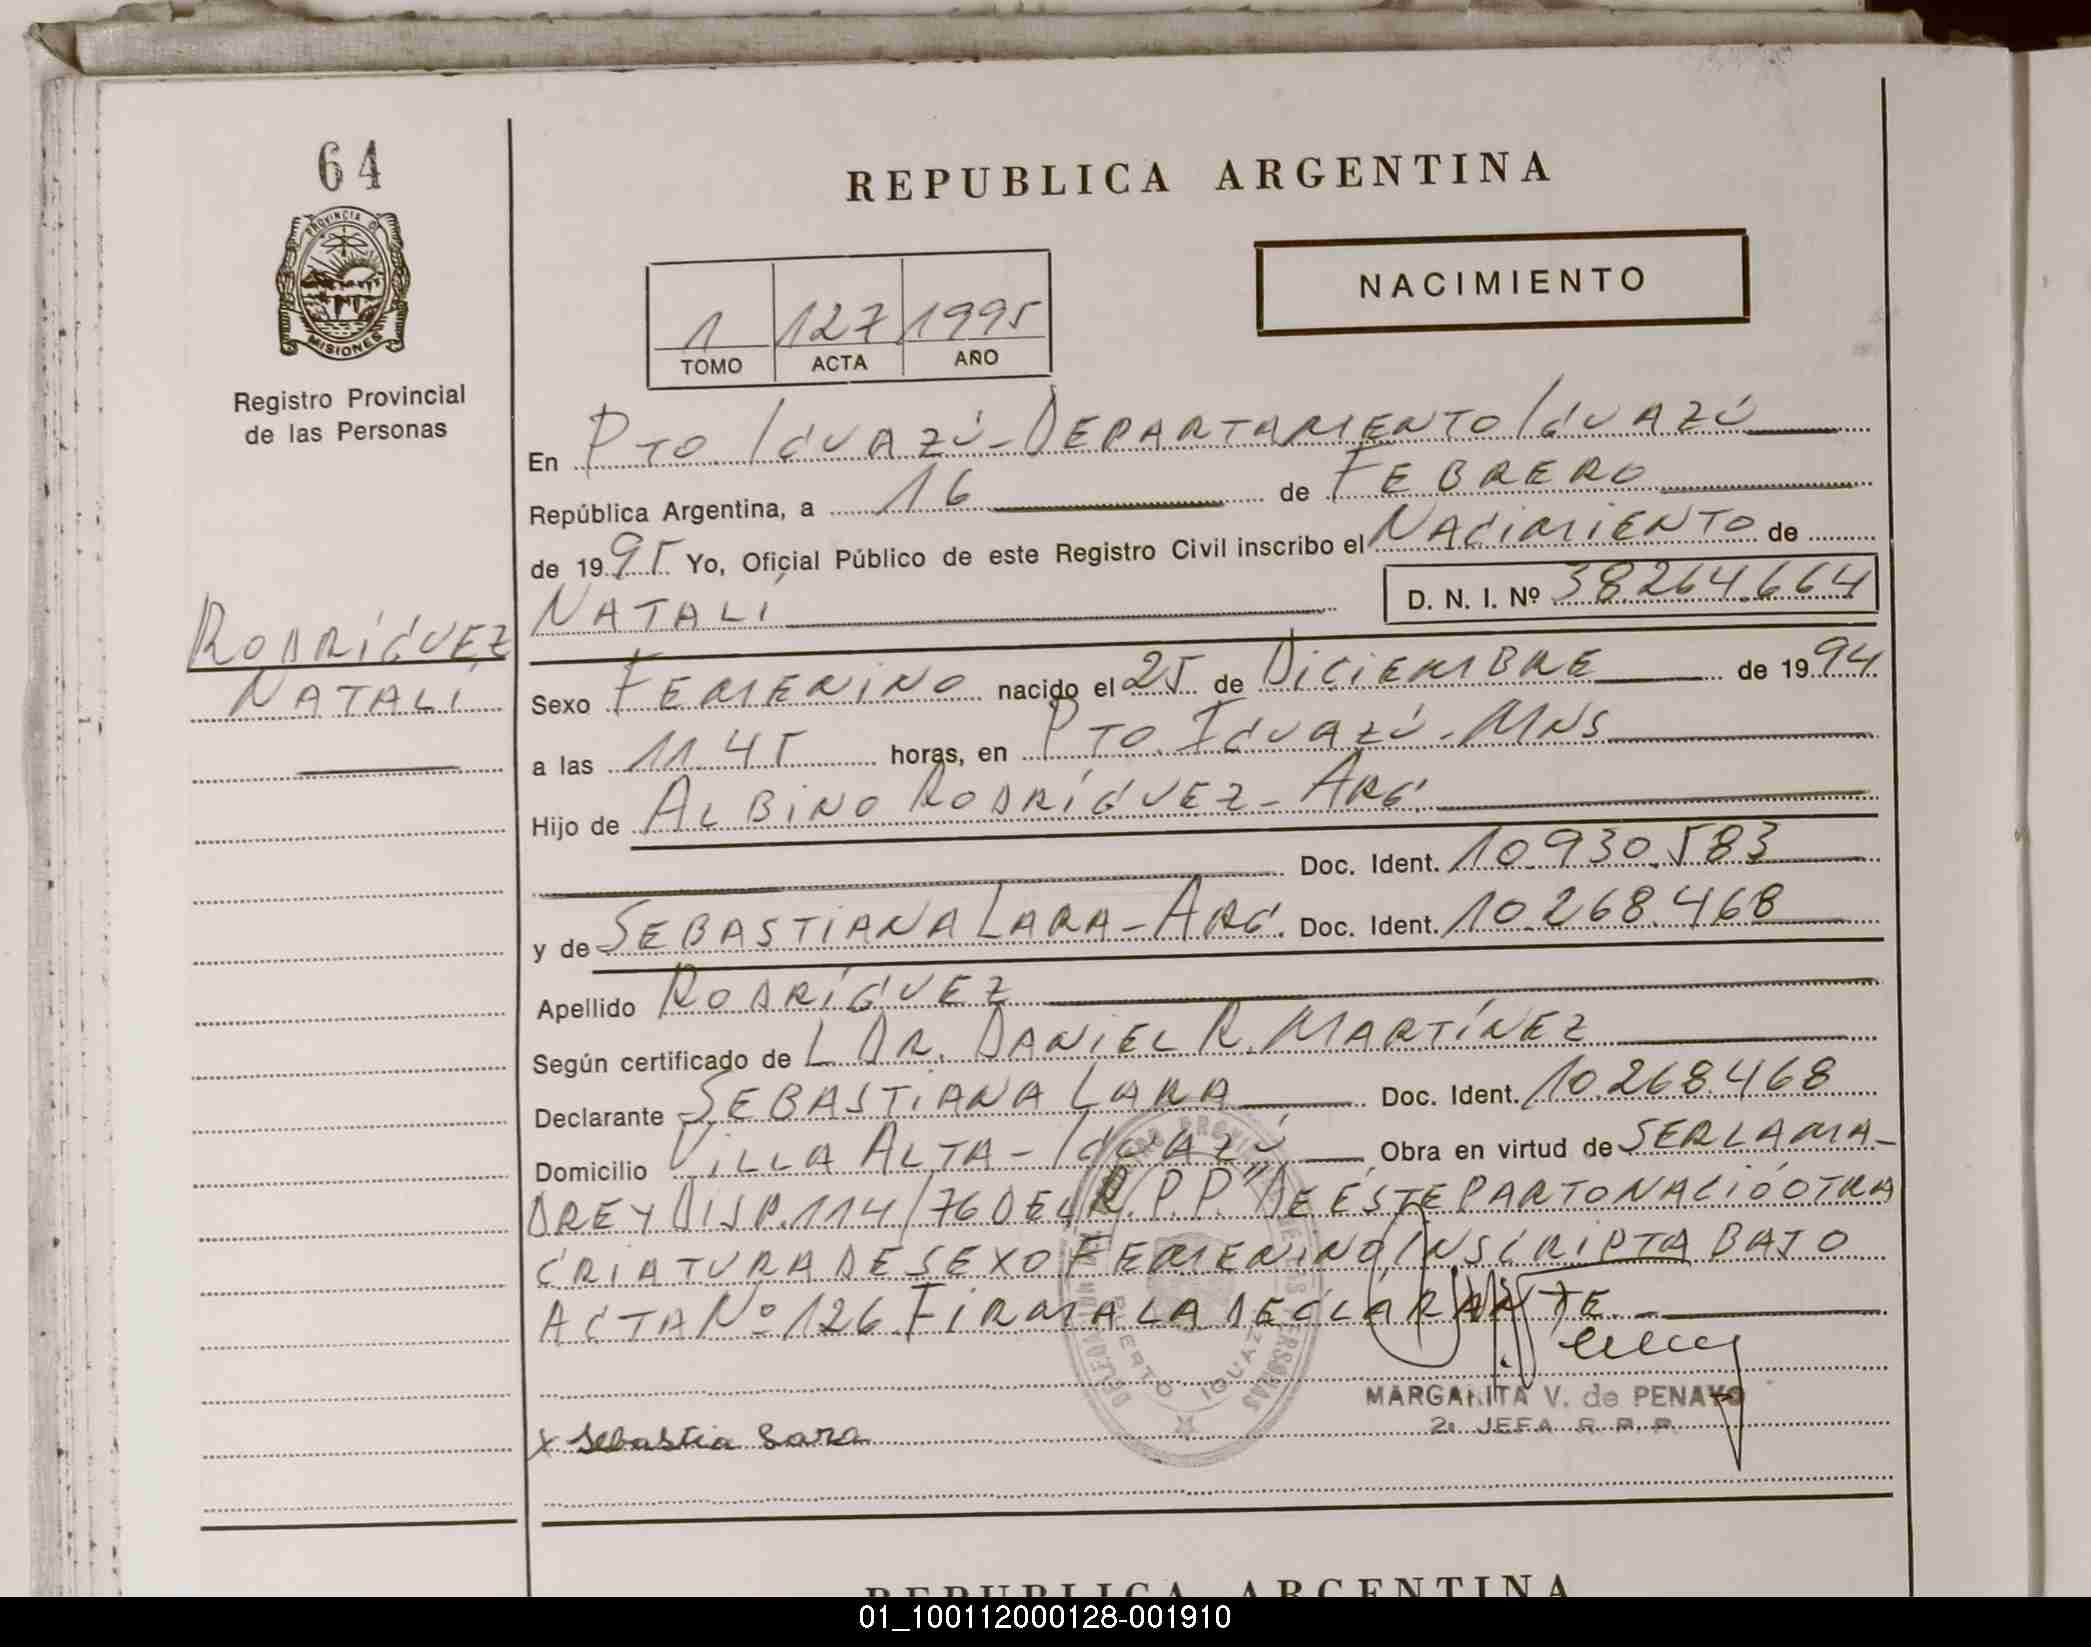 64
REPUBLICA ARGENTINA
PROVINCIA D
MISIONES
Registro Provincial
de las Personas
NACIMIENTO
1 127 1995
TOMO ACTA AÑO
En PTO. IGUAZÚ - DEPARTAMENTO IGUAZÚ
República Argentina, a 16 de FEBRERO
de 1995 Yo, Oficial Público de este Registro Civil inscribo el NACIMIENTO de
NATALÍ D. N. I. Nº 38.264.664
RODRÍGUEZ
NATALÍ
Sexo FEMENINO nacido el 25 de DICIEMBRE de 1994
a las 11.45 horas, en PTO. IGUAZÚ - MNS
Hijo de ALBINO RODRÍGUEZ - ARG.
Doc. Ident. 10.930.583
y de SEBASTIANA LARA - ARG. Doc. Ident. 10.268.468
Apellido RODRÍGUEZ
Según certificado de L DR. DANIEL R. MARTÍNEZ
Declarante SEBASTIANA LARA Doc. Ident. 10.268.468
Domicilio VILLA ALTA - IGUAZÚ Obra en virtud de SER LA MA-
DRE Y DISP. 114/76 DEL R.P.P. "DE ÉSTE PARTO NACIÓ OTRA
CRIATURA DE SEXO FEMENINO, INSCRIPTA BAJO
ACTA Nº 126. FIRMA LA DECLARANTE.
PUERTO IGUAZU
MARGARITA V. de PENAYO
2a JEFA R. P. P.
x Sebastia Lara
REPUBLICA ARGENTINA
01_100112000128-001910